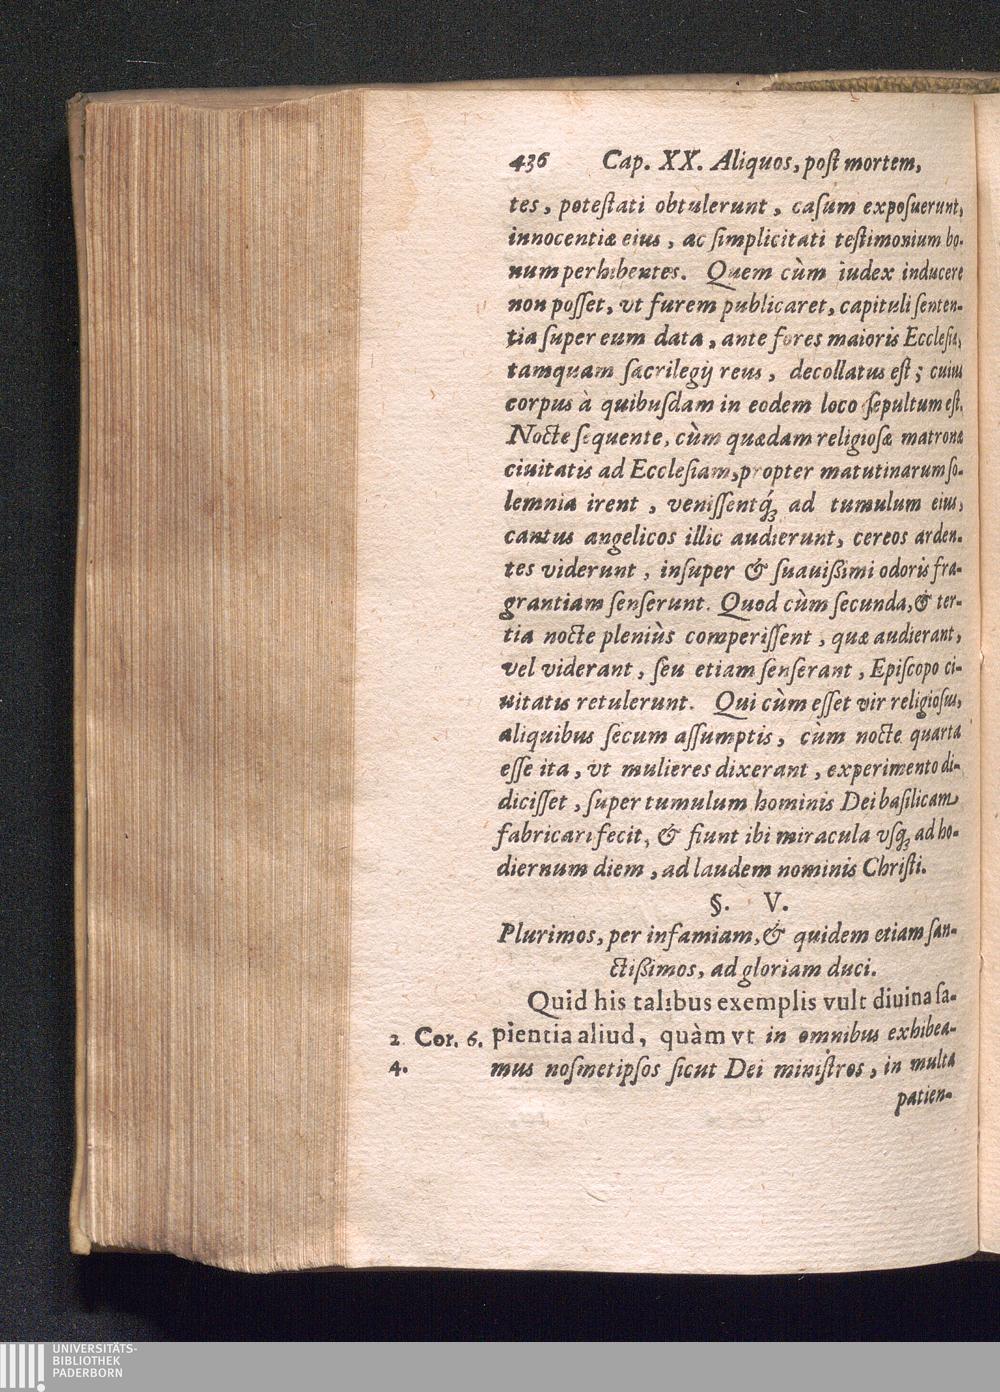 436 Cap. XX. Aliquos, poſt mortem,
tes, poteſtati obtulerunt, caſum expoſuerunt,
innocentiæ eius, ac ſimplicitati teſtimonium bo-
num perhibentes. Quem cùm iudex inducere
non poſſet, vt furem publicaret, capituli ſenten-
tia ſuper eum data, ante fores maioris Eccleſiæ,
tamquam ſacrilegij reus, decollatus eſt; cuius
corpus à quibuſdam in eodem loco ſepultum eſt.
Nocte ſequente, cùm quædam religioſæ matronæ
ciuitatis ad Eccleſiam, propter matutinarum ſo-
lemnia irent, veniſſentq́ꝫ ad tumulum eius,
cantus angelicos illic audierunt, cereos arden-
tes viderunt, inſuper & ſuauißimi odoris fra-
grantiam ſenſerunt. Quod cùm ſecunda, & ter-
tia nocte pleniùs comperiſſent, quæ audierant,
vel viderant, ſeu etiam ſenſerant, Epiſcopo ci-
uitatis retulerunt. Qui cùm eſſet vir religioſus,
aliquibus ſecum aſſumptis, cùm nocte quarta
eſſe ita, vt mulieres dixerant, experimento di-
diciſſet, ſuper tumulum hominis Dei baſilicam
fabricari fecit, & fiunt ibi miracula vſqꝫ ad ho-
diernum diem, ad laudem nominis Chriſti.
§. V.
Plurimos, per infamiam, & quidem etiam ſan-
ctißimos, ad gloriam duci.
Quid his talibus exemplis vult diuina ſa-
2 Cor. 6. pientia aliud, quàm vt in omnibus exhibea-
4. mus noſmetipſos ſicut Dei miniſtros, in multa
patien-
UNIVERSITÄTS-
BIBLIOTHEK
PADERBORN